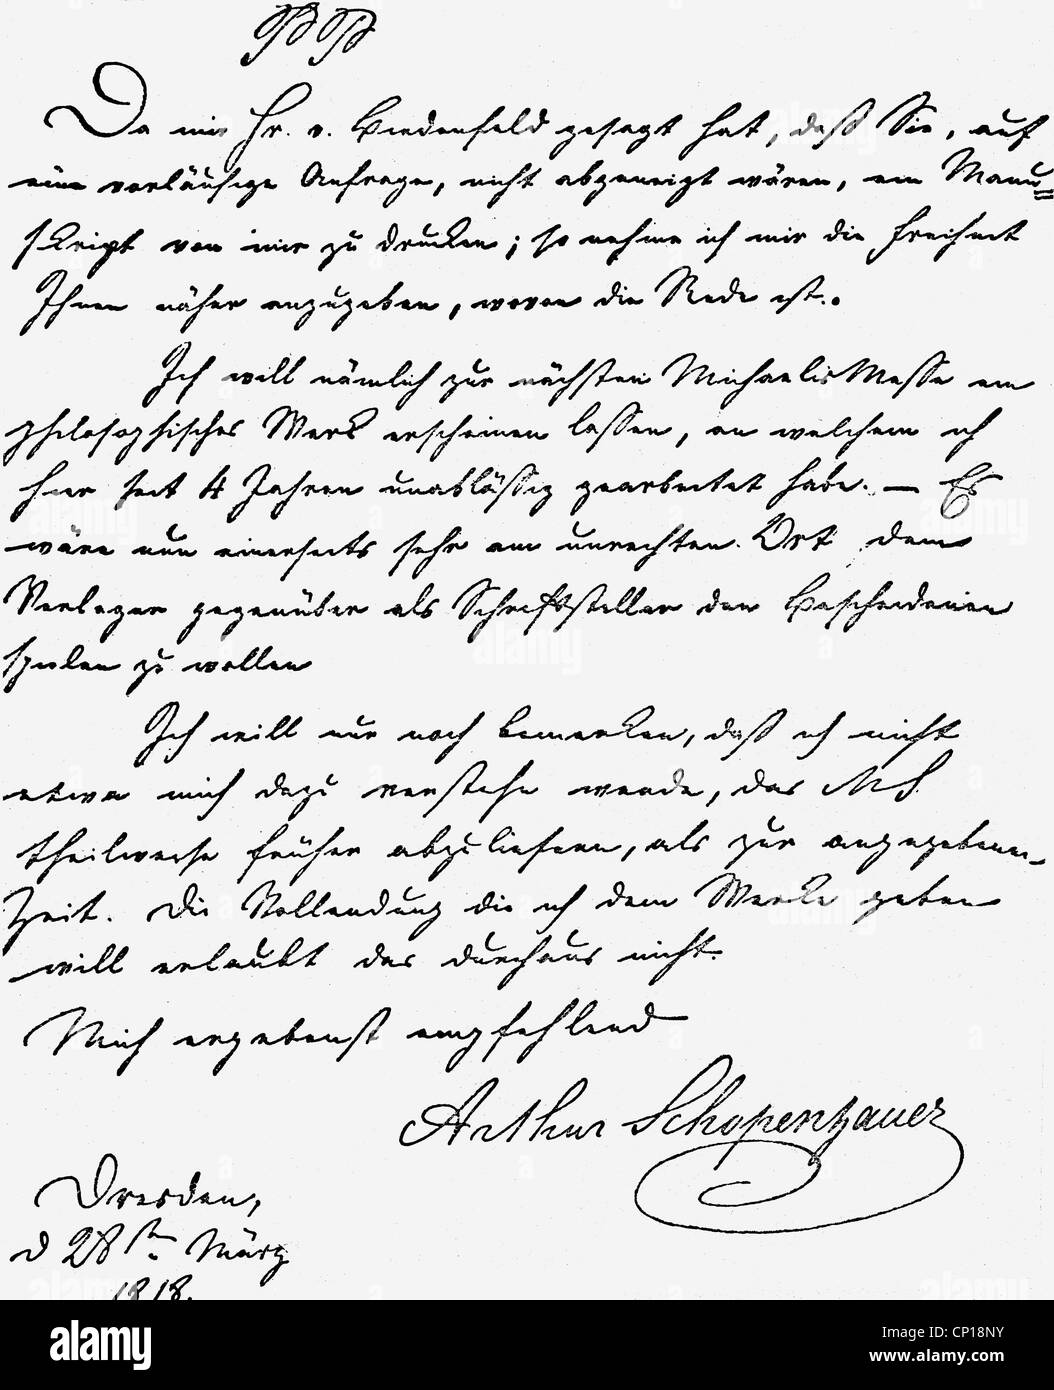 PP
Da mir Hr. v. Biedenfeld gesagt hat, daß Sie, auf
eine vorläufige Anfrage, nicht abgeneigt wären, ein Manu=
skript von mir zu drucken; so nehme ich mir die Freiheit
Ihnen näher anzugeben, wovon die Rede ist.
Ich will nämlich zur nächsten MichaelisMesse ein
philosophisches Werk erscheinen lassen, an welchem ich
hier seit 4 Jahren unablässig gearbeitet habe. — Es
wäre nun einerseits sehr am unrechten Ort dem
Verleger gegenüber als Schriftsteller den Bescheidenen
spielen zu wollen
Ich will nur noch bemerken, daß ich nicht
etwa mich dazu verstehn werde, das MS.
theilweise früher abzuliefern, als zur angegebenen
Zeit. Die Vollendung die ich dem Werke geben
will erlaubt das durchaus nicht.
Mich ergebenst empfehlend
Arthur Schopenhauer
Dresden,
d 28sten März
1818.
alamy
Image ID: CP18NY
www.alamy.com